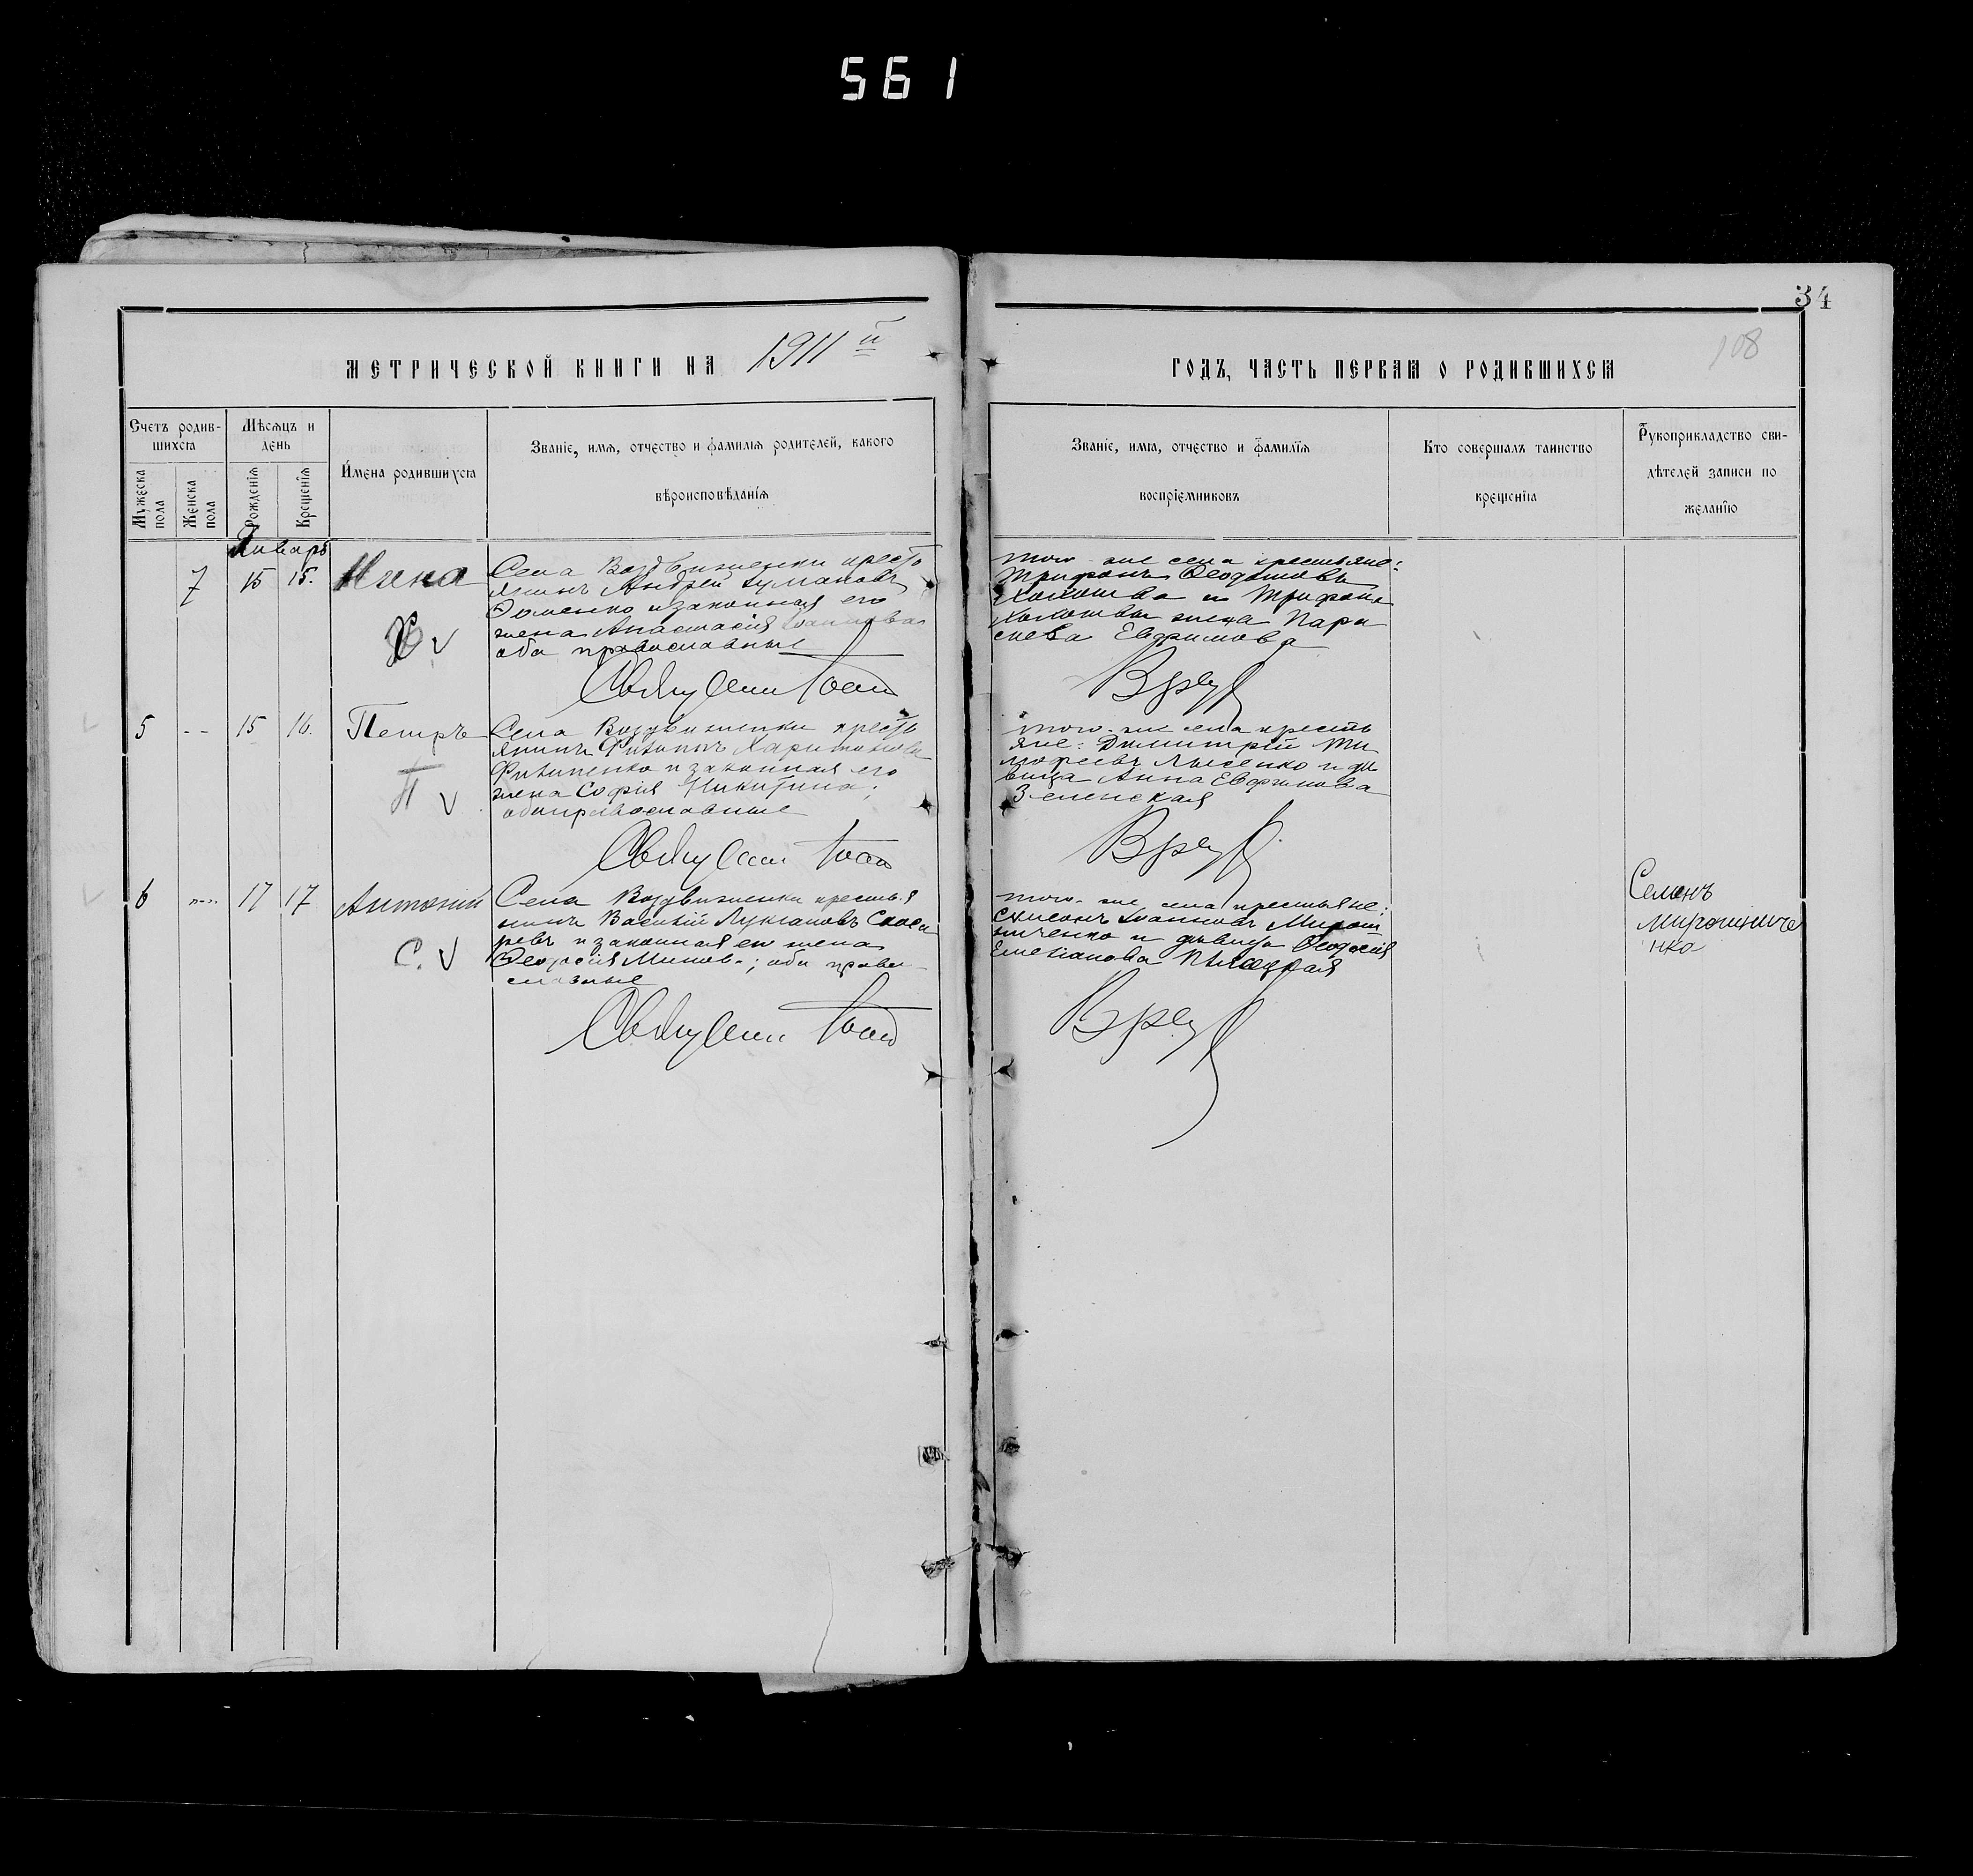 561
34
108
МЕТРИЧЕСКОЙ КНИГИ НА 1911й
ГОДЪ, ЧАСТЬ ПЕРВАЯ О РОДИВШИХСЯ
Счетъ родив-
шихся
Мужеска
пола
Женска
пола
Мѣсяцъ и
день
Рожденія
Крещенія
Имена родившихся
Званіе, имя, отчество и фамилія родителей, какого
вѣроисповѣданія
Званіе, имя, отчество и фамилія
воспріемниковъ
Кто совершалъ таинство
крещенія
Рукоприкладство сви-
дѣтелей записи по
желанію
Январь
7 15 15. Нина
Села Воздвиженки кресть
янинъ Андрей
Ѳоменко и законная его
жена Анастасія Іоаннова
оба православные
Свящ Іоан
того-же села крестьяне:
Трифонъ Ѳеодотовъ
и Трифона
жена Парас
кева Евфимова
5 -- 15 16. Петръ
П v
Села Воздвиженки кресть
янинъ Филиппъ Харитоновъ
Филипенко и законная его
жена Софія Никитина;
оба православные
Свящ Іоан
того-же села кресть
яне: Димитрій Ти
мофеевъ Лысенко и дѣ
вица Анна Евфимова
Зеленская
6 17 17 Антоній
С. v
Села Воздвиженки крестья
нинъ Василій Лукіановъ
и законная его жена
Ѳеодосія ; оба право
славные
Свящ Іоан
того-же села крестьяне:
Симеонъ Іоанновъ Мирош
ниченко и дѣвица Ѳеодосія
Емеліанова
Семенъ
Мирошниче
нко